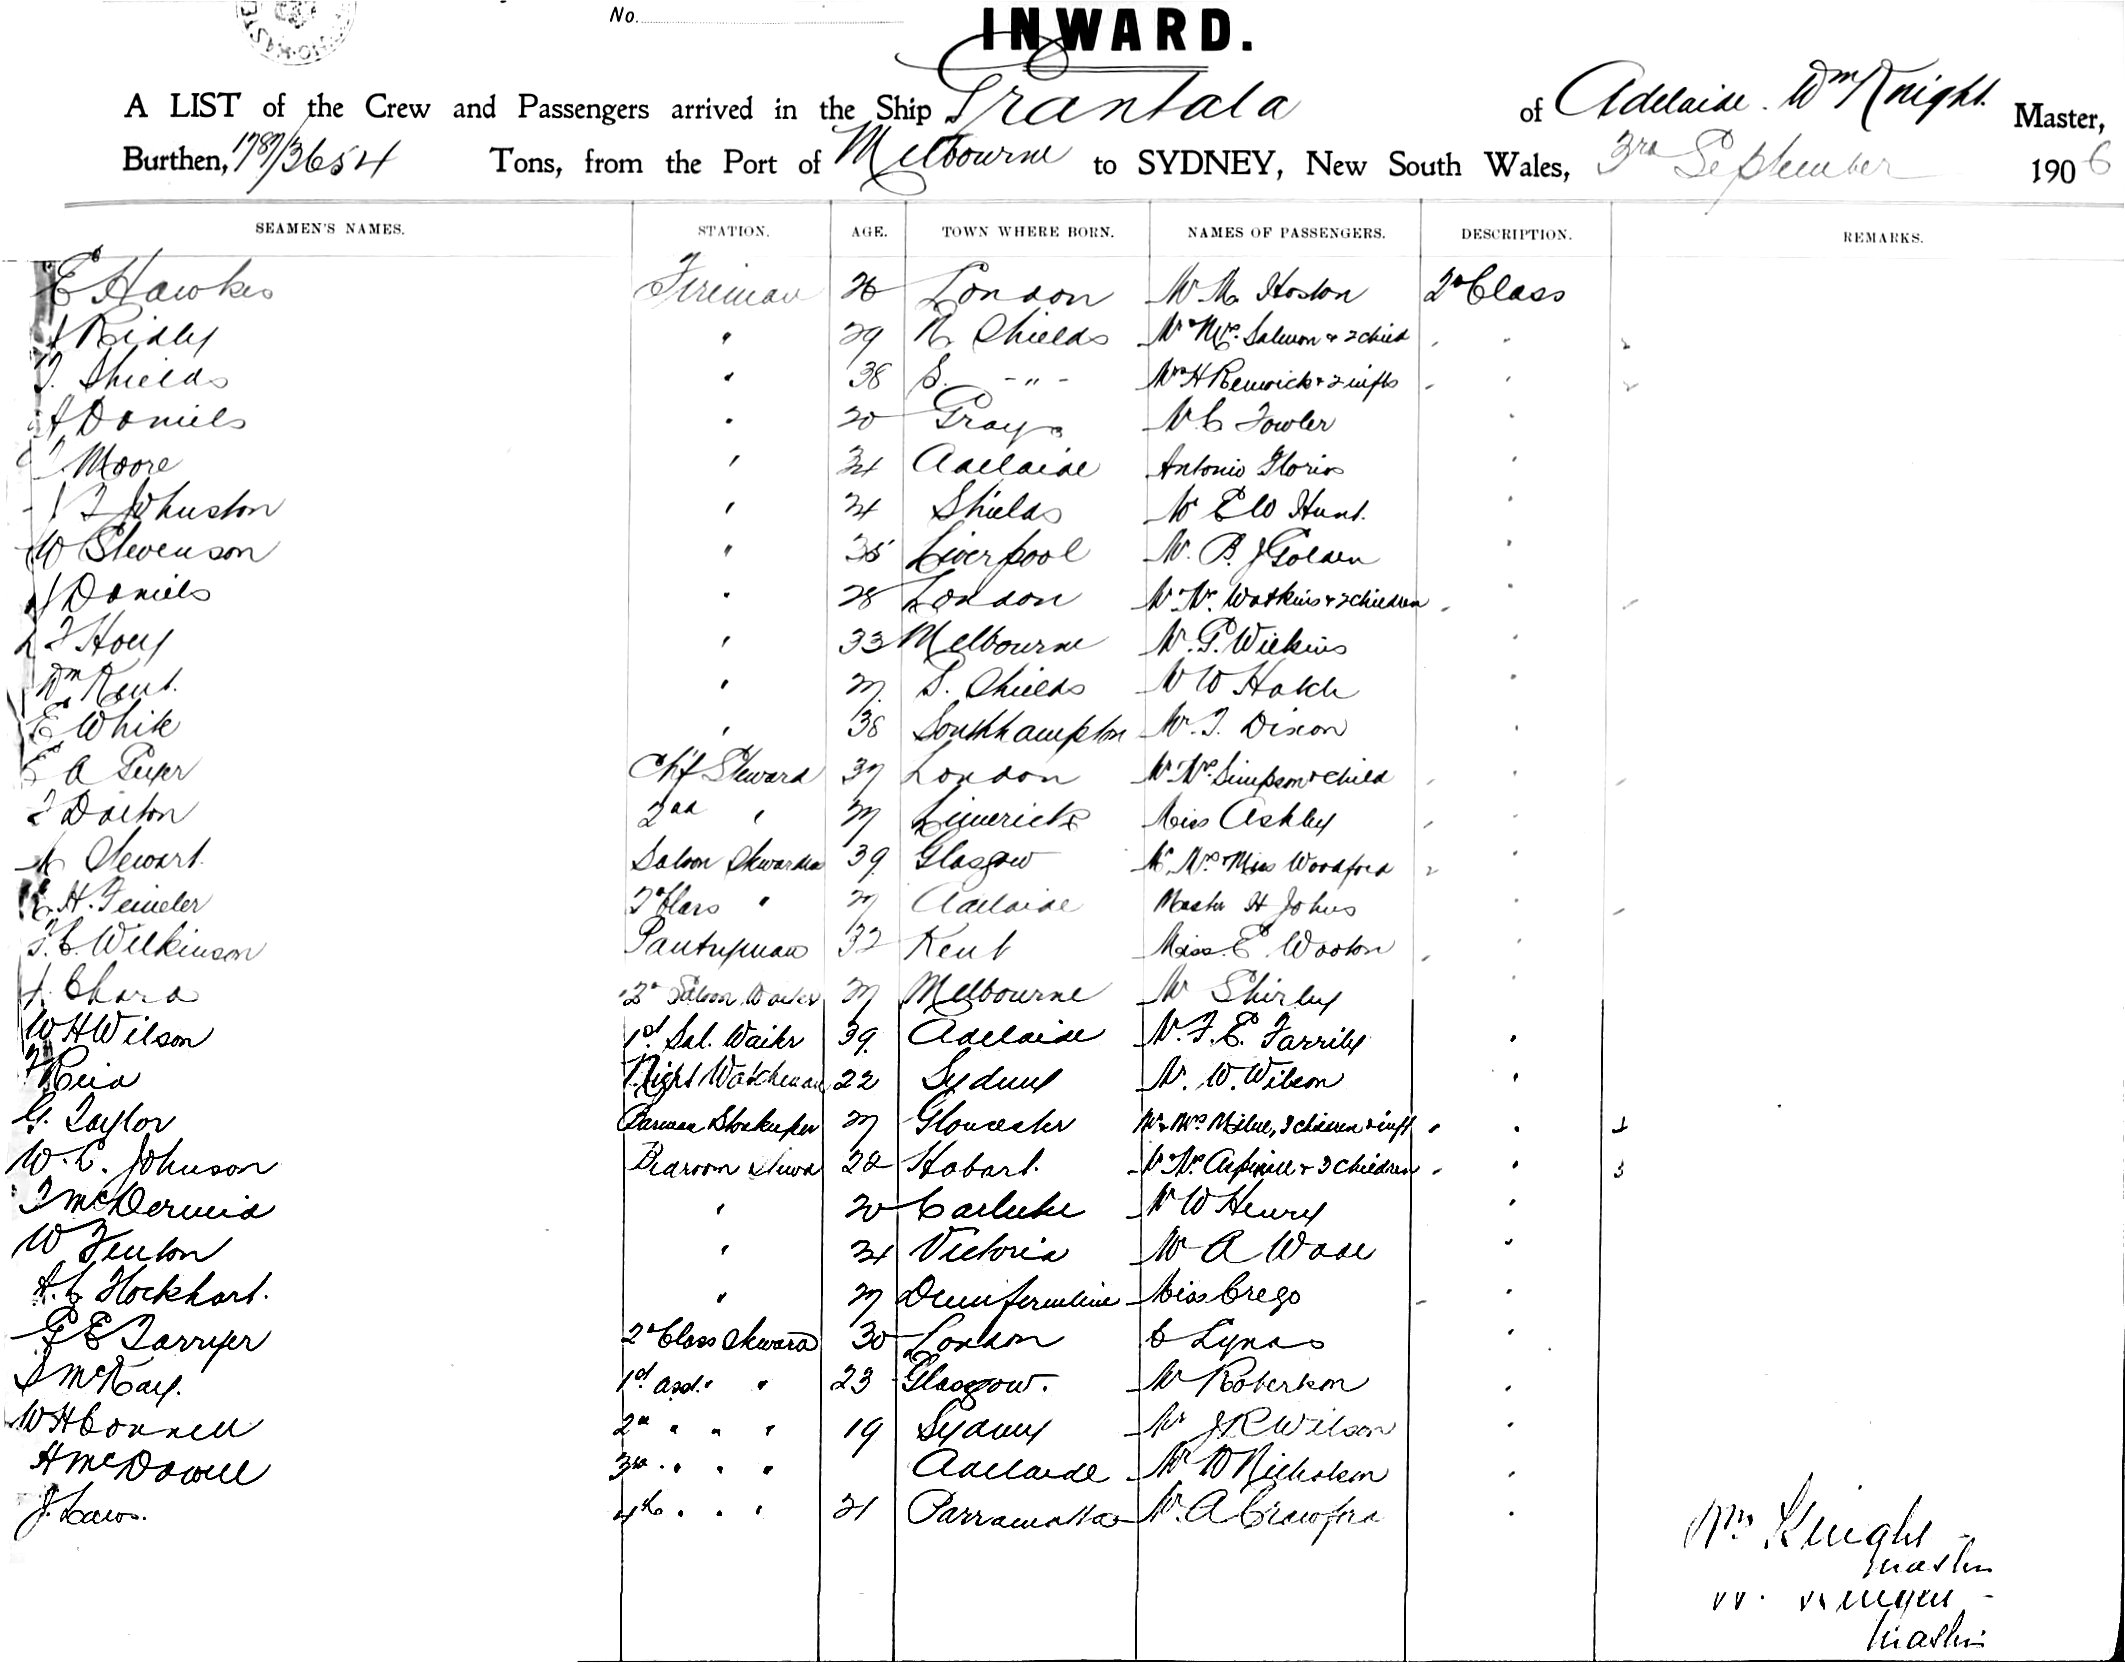 No.
INWARD.
A LIST of the Crew and Passengers arrived in the Ship Grantala of Adelaide. Wm Knight. Master,
Burthen, 1787/3654 Tons, from the Port of Melbourne to SYDNEY, New South Wales, 3rd September 1906
SEAMEN'S NAMES. STATION. AGE. TOWN WHERE BORN. NAMES OF PASSENGERS. DESCRIPTION. REMARKS.
E Hawkes Fireman 26 London Mr M Hoston 2d Class
J Ridley " 29 N Shields Mr & Mrs Salmon & 2 child "
T. Shields " 38 S. -"- Mrs H Renwick & 2 infts "
A Daniels " 20 Grays Mr C Fowler "
Moore " 34 Adelaide Antonio Glorios "
J T Johnston " 34 Shields Mr E W Hunt. "
W Stevenson " 35 Liverpool Mr. B. J Golden "
J Daniels " 28 London Mr Mrs Watkins & 2 children "
Hoey " 33 Melbourne Mr. G. Wilkins "
Wm Kent. " 27 S. Shields Mr W Hatch "
E White " 38 Southhampton Mr. T. Dixon "
E A Chf Steward 37 London Mr Mrs Simpson & child "
Dalton 2nd " 27 Limerick Miss Ashley "
M Stewart. Saloon Stewardess 39 Glasgow Mr Mrs & Miss Woodford
H. 2d Class " 27 Adelaide Master H Johns "
F. C. Wilkinson Pantryman 32 Kent Miss E. Wooton "
J. O'Hara 2d Saloon Waiter 27 Melbourne Mr Shirley "
W H Wilson 1st. Sal. Waiter 39. Adelaide Mr. F. E. Farrily "
Reid Night Watchman 22 Sydney Mr. W. Wilson "
G. Taylor Barman Storekeeper 27 Gloucester Mr & Mrs Milne, 3 children & inft " 1
W. C. Johnson Bedroom Stewd 22 Hobart. Mr Mrs Aspinall & 3 children " 3
T McDermid " 20 Carluke Mr W Henry "
W Fenton " 34 Victoria Mr A Wade "
A. C Flockhart. " 27 Dunfermline Miss Crego "
G E Farryer 2d Class Steward 30 London C Lynas "
S McKay. 1st. asst. " 23 Glasgow. Mr Robertson "
W H Connell 2d " " " 19 Sydney Mr J R Wilson "
H McDowell 3rd " " " Adelaide Mr W Nicholson "
J. Laws. 4th " " " 21 Parramatta Mr. A Crawford "
Wm Knight -
Master
Master